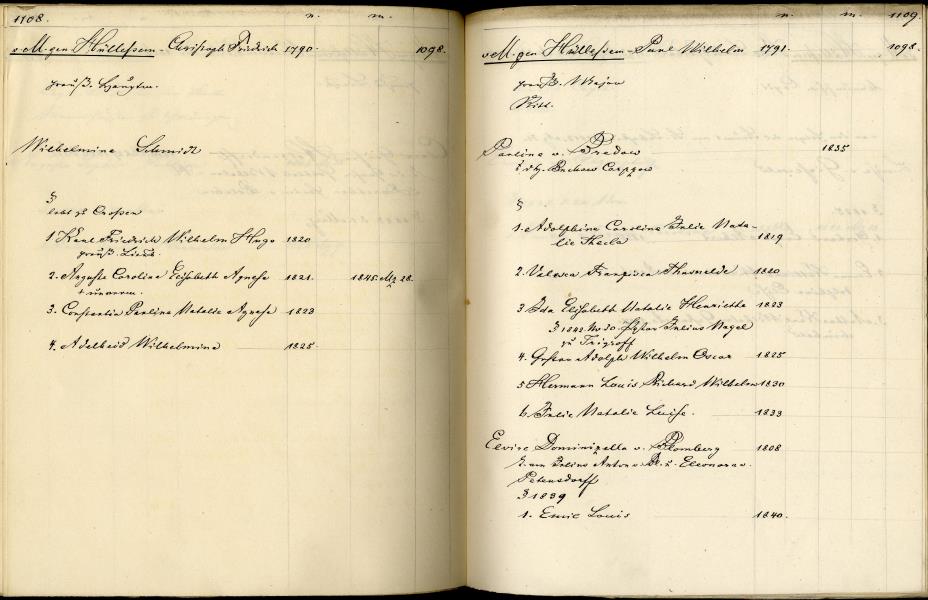 1108. n. m.
v M. gen Hüllessem - Christoph Friedrich 1790. 1098.
preuß. Hauptm.
Wilhelmine Schmidt
lebt zu Crossen
1 Karl Friedrich Wilhelm Hugo 1820
preuß. Lieut.
2. Auguste Caroline Elisabeth Agnese 1821. 1845. Mz 28.
† unverm.
3. Constantia Paulina Natalie Agnese 1823
4. Adelheid Wilhelmine 1825.
n. m. 1109.
v M. gen Hüllessem - Paul Wilhelm 1791. 1098.
preuß. Major
Ritt.
Pauline v. Bredow 1835
Buchow Carpzow
1. Adolphine Caroline Julie Nata-
lie Thecla 1819
2. Valesca Franzisca Thusnelde 1820
3 Ida Elisabeth Natalie Henriette 1823
1842 30 Julius Nagel
zu Trigloff
4. Gustav Adolph Wilhelm Oscar 1825
5 Hermann Louis Richard Wilhelm 1830
6 Julie Natalie Luise. 1833
Elvire v. Blomberg 1808
Julius Anton v. Bl. u. Eleonora v.
Petersdorff
1839
1. Emil Louis 1840.